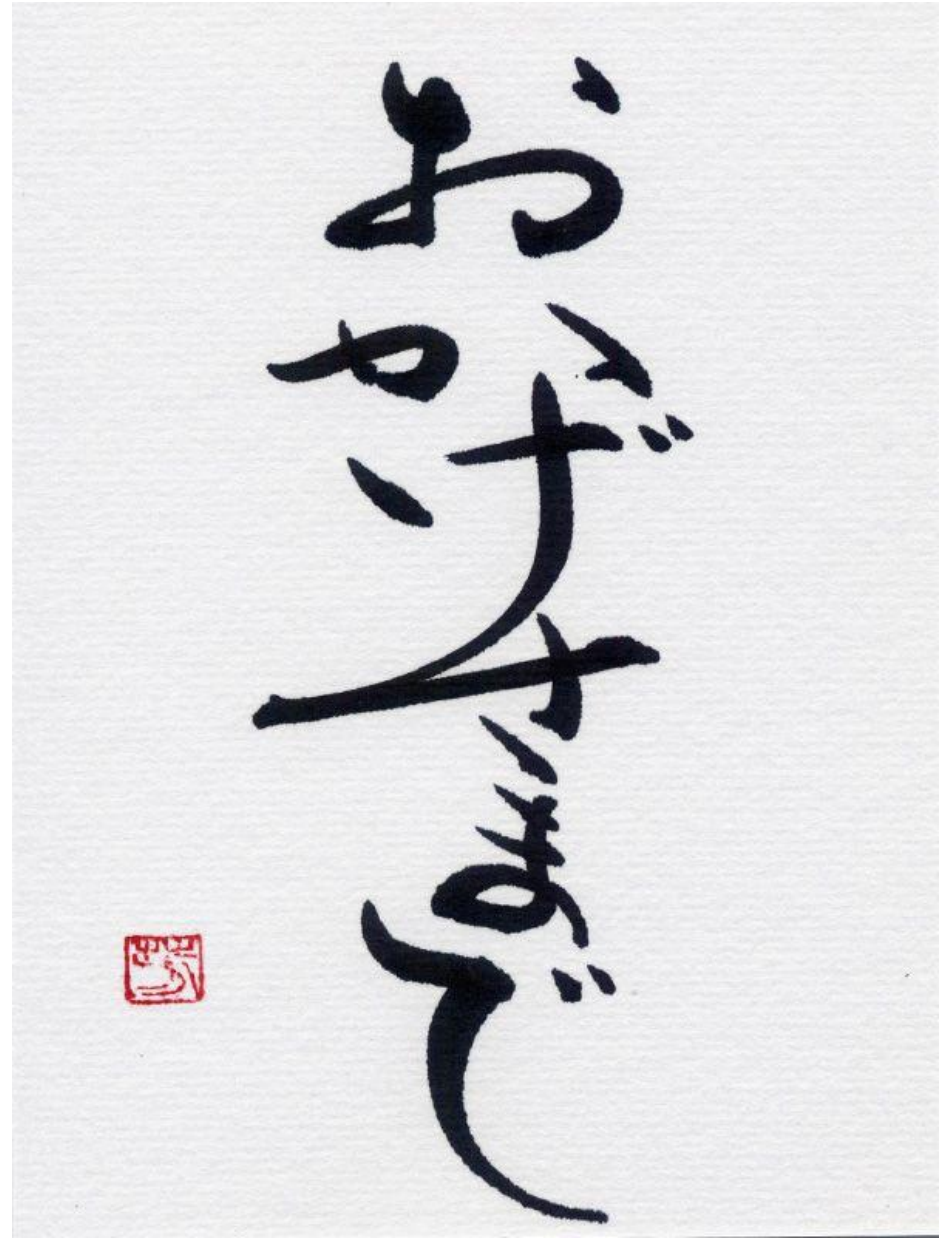 おかげさまで